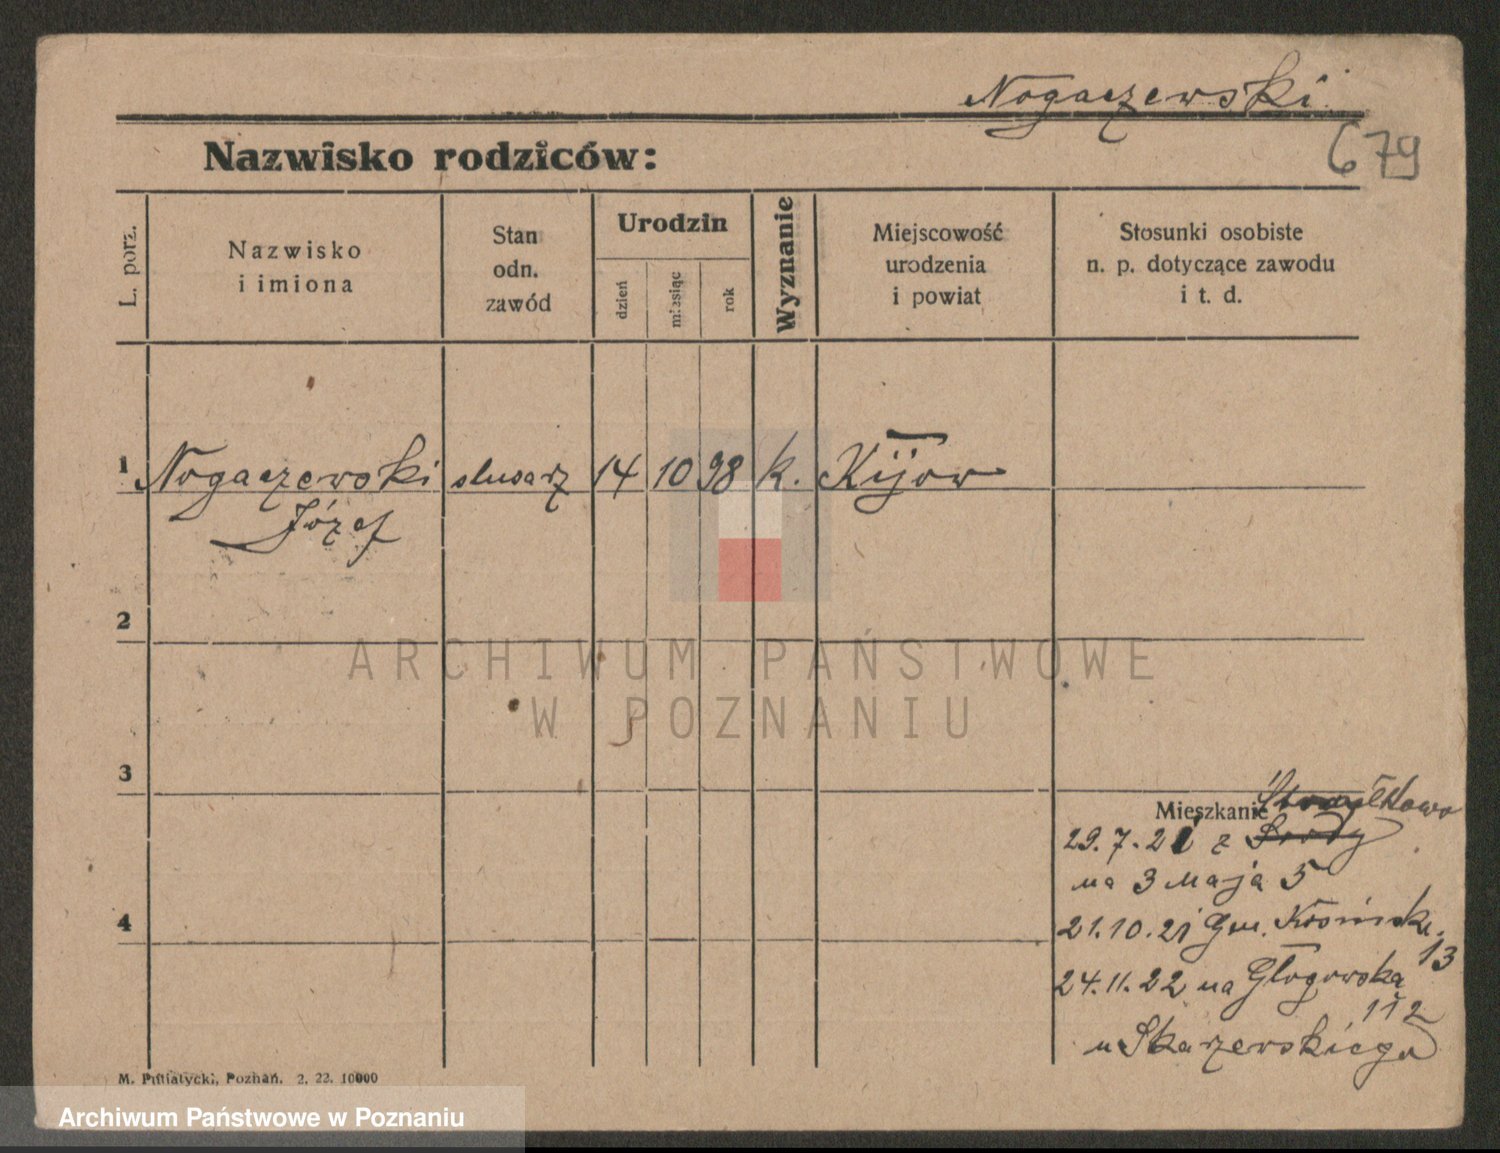 Nogaczewski
679
Nazwisko rodziców:
L. porz.
Nazwisko
i imiona
Stan
odn.
zawód
Urodzin
dzień
miesiąc
rok
Wyznanie
Miejscowość
urodzenia
i powiat
Stosunki osobiste
n. p. dotyczące zawodu
i t. d.
1 Nogaczewski slusarz 14 10 98 k. Kijow
Józef
2
3
4
Mieszkanie
29.7.21 z Srody
na 3 Maja 5
21.10.21 Gen.
13
24.11.22 na Głogowska
112
u Skarzewskiego
M. Putiatycki, Poznań. 2. 22. 10000
ARCHIWUM PAŃSTWOWE
W POZNANIU
Archiwum Państwowe w Poznaniu